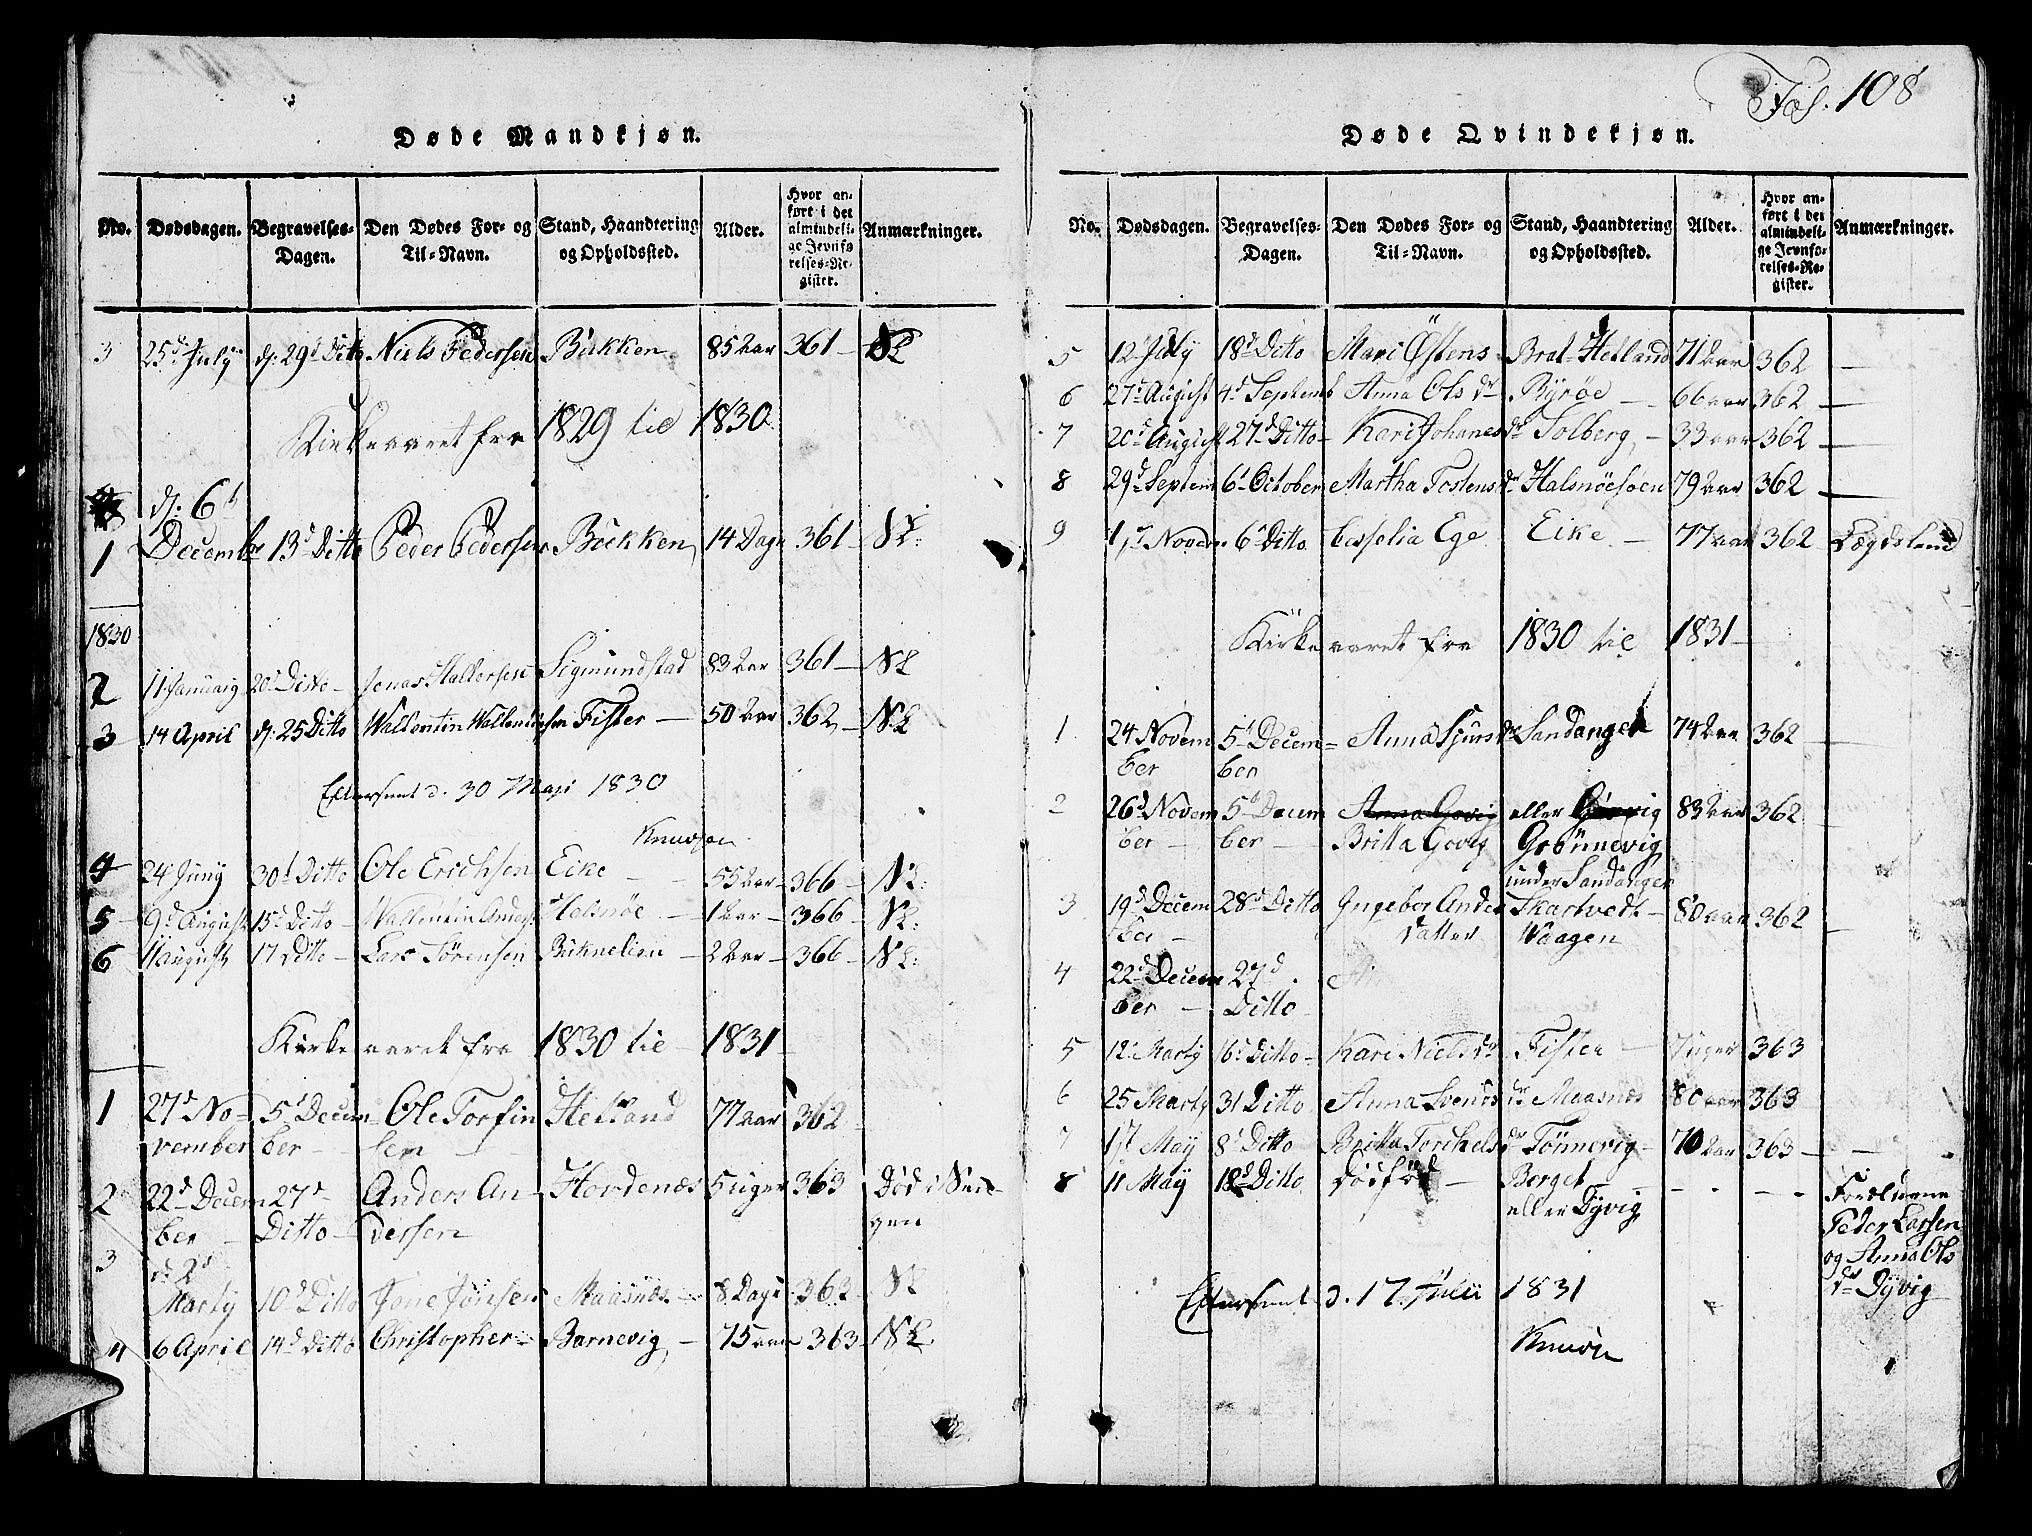 Fol. 108
Døde Mandkjøn.
No. Dødsdagen. Begravelses-Dagen. Den Dødes For- og Til-Navn. Stand, Haandtering og Opholdssted. Alder. Hvor anført i det almindelige Jevnførelses-Register. Anmærkninger.
3 25d July d: 29d Ditto Niels Pedersen Bukken 85 aar 361 NL
Kirkeaaret fra 1829 til 1830
1 d: 6t December 13d Ditto Peder Pedersen Bukken 14 Dage 361 NL:
1830
2 11 Januarij 20d Ditto Jonas Hallersen Sigmundstad 83 aar 361 NL
3 14 April d: 25 Ditto Wallentin Wallentinsen Fister 50 aar 362 NL
Eftersent d. 30 Maji 1830
Knudsen
4 24 Juny 30d Ditto Ole Erichsen Eike 55 aar 366 NL:
5 9d August 15d Ditto Wallentin Anders: Helsnøe 1 aar 366 NL:
6 11 August 17 Ditto Lars Sørensen 2 aar 366 NL:
Kirkeaaret fra 1830 til 1831
1 27d No-
vember 5t Decem-
ber Ole Torfin-
sen Hetland 77 aar 362
2 22d Decem-
ber 27d
Ditto Anders An-
dersen Hordenæs 5 uger 363
3 d: 2d
Marty 10d Ditto Jone Jonsen Maasnæs 8 Dage 363 NL
4 6 April 14d Ditto Christopher Barnevig 75 aar 363 NL
Døde Qvindekjøn.
No. Dødsdagen. Begravelses-Dagen. Den Dødes For- og Til-Navn. Stand, Haandtering og Opholdssted. Alder. Hvor anført i det almindelige Jevnførelses-Register. Anmærkninger.
5 12 July 18d Ditto Mari Østens Brat-Hetland 71 aar 362
6 27d August 4d Septemb Anna Ols dr Byrøe 66 aar 362
7 20d August 27d Ditto Kari Johanes dr Solberg 33 aar 362
8 29d Septem 6t October Martha Tostens dr Halsnøesøen 79 aar 362
9 1st Novem. 6t Ditto Cesselia Ege Eike 77 aar 362 Lægdslem
Kirkeaaret fra 1830 til 1831
1 24 Novem
ber 5t Decem-
ber Anna Sjurs dr Sandanger 74 aar 362
2 26d Novem
ber 5t Decem
ber Anna Govig
Britta Govig eller Gønvig
Grönnevig
under Sandanger 83 aar 362
3 19d Decem
ber 28d Ditto Ingebor Anders
datter Skartvedt
Waagen 80 aar 362
4 22d Decem
ber 27d
Ditto
5 12t Marty 16d Ditto Kari Niels dr Fister 7 uger 363
6 25 Marty 31 Ditto Anna Svends dr Maasnæs 80 aar 363
7 1st May 8t Ditto Britta Torchels dr Tönnevig 70 aar 363
8 11 May 18d Ditto Dödfød Berget
eller Dyvig Foreldrene
Peder Larsen
og Anna Ols
dr Dyvig
Eftersent d. 17 Juli 1831
Knudsen